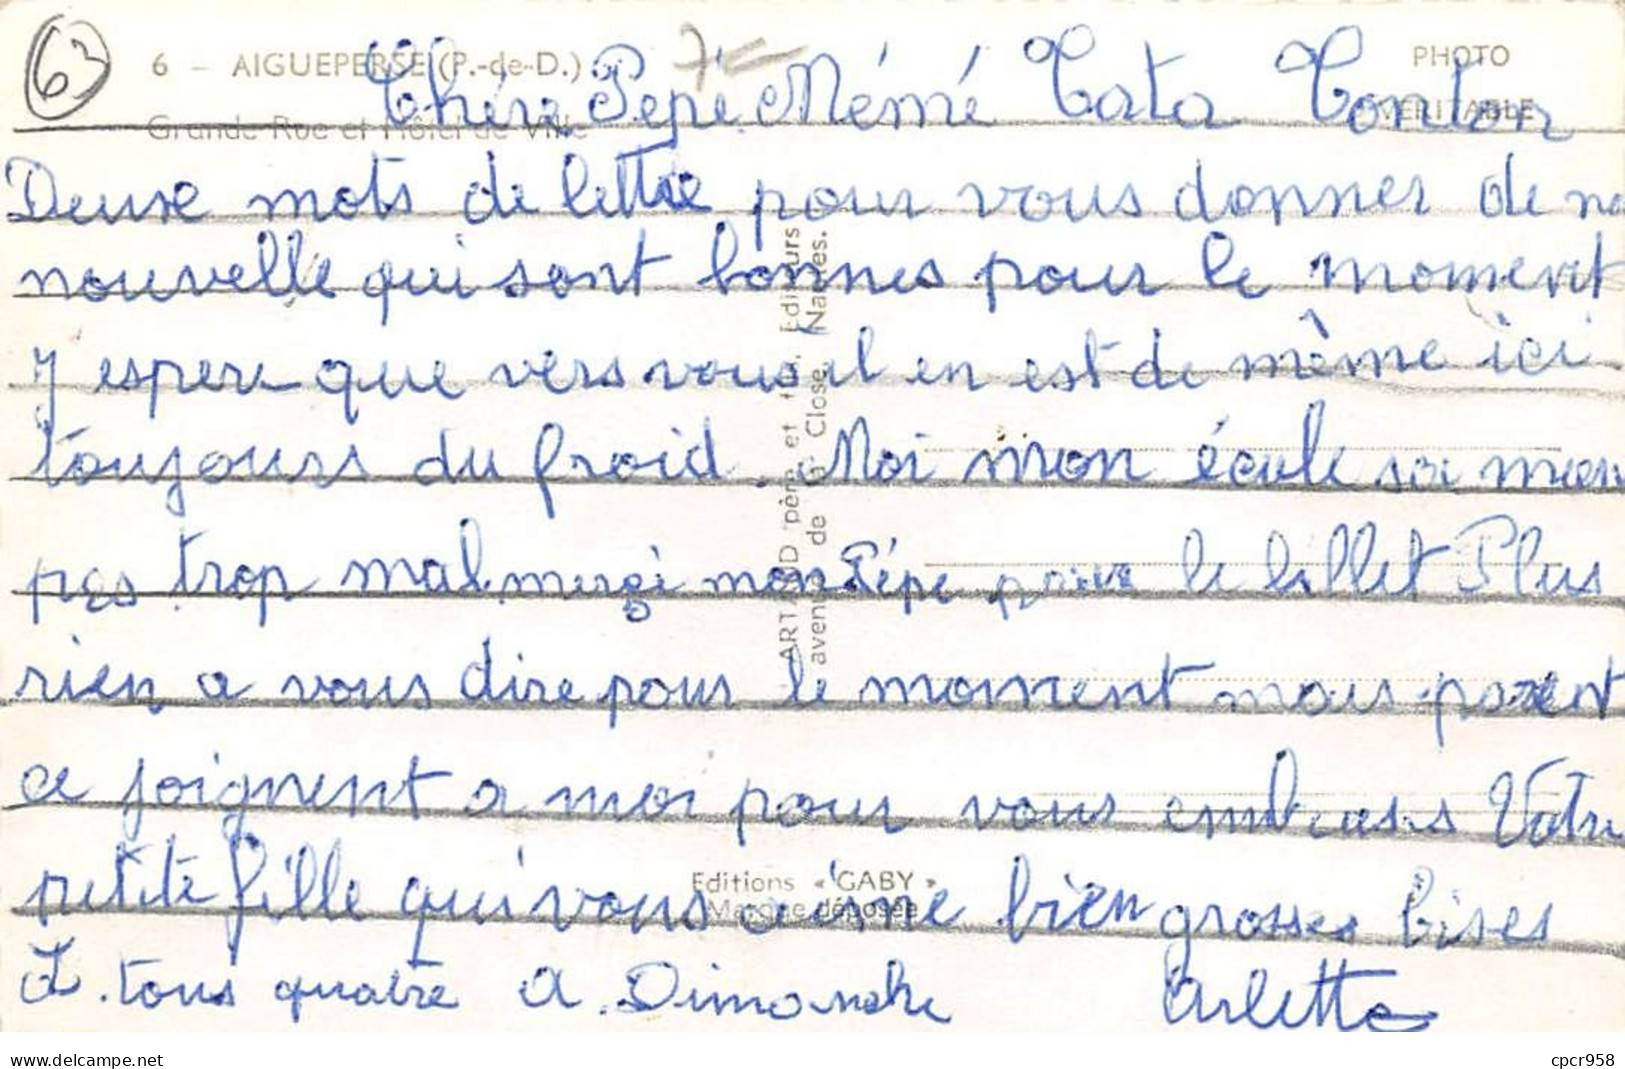 63
6 - AIGUEPERSE (P.-de-D.)
Grande Rue et Hôtel de Ville
PHOTO
VERITABLE
Chère Pépé Mémé Tata Tonton
Deuxe mots de lettre pour vous donner de no
nouvelle qui sont bonnes pour le moment
J espere que vers vous il en est de même ici
toujours du froid. Moi mon école
pas trop mal merçi mon Pépe pour le billet Plus
rien a vous dire pour le moment mais parent
ce joignent a moi pour vous embrass Votre
petite fille qui vous aime bien grosses bises
a tous quatre A Dimanche Arlette
ARTAUD père et fils, Editeurs
avenue de la Close, Nantes.
Editions « GABY »
Marque déposée
cpcr958